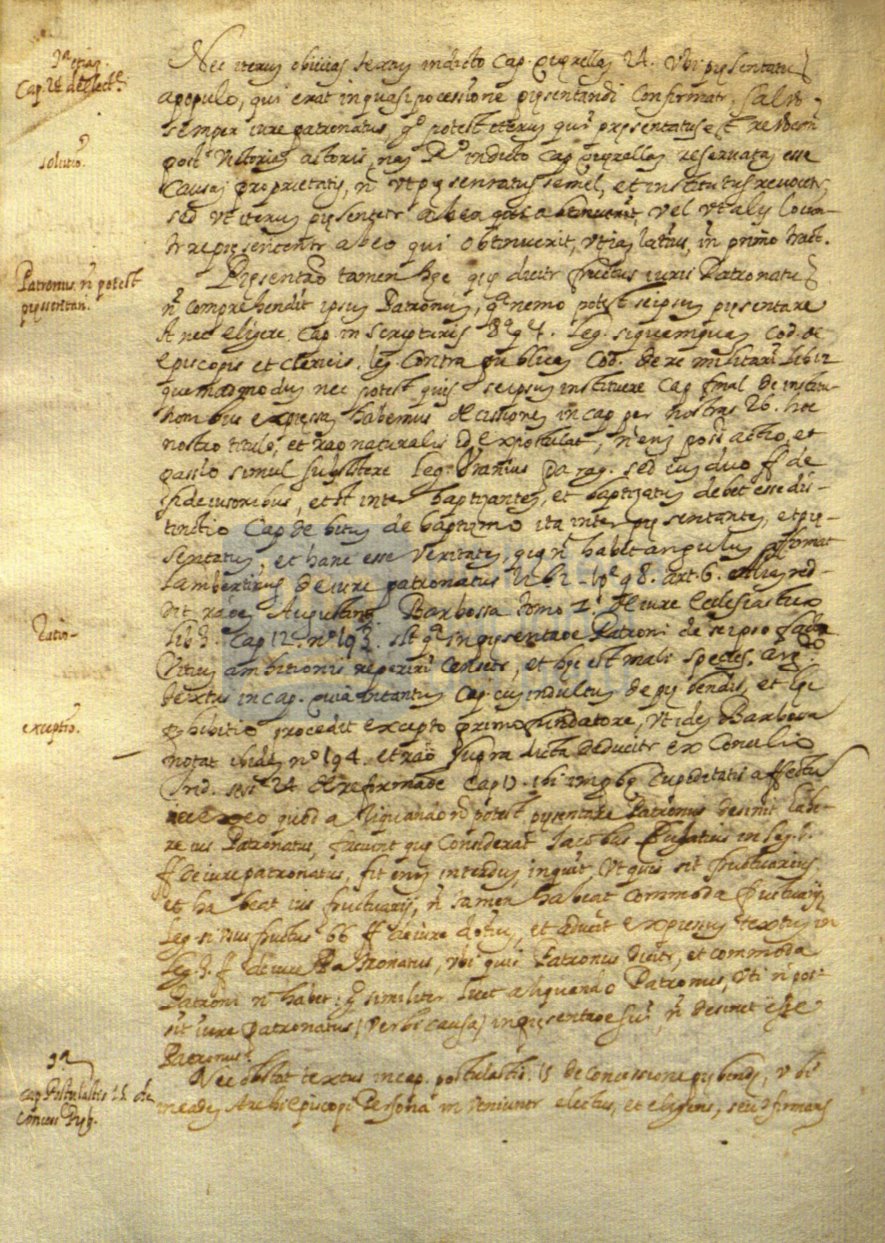 Nec iterum obviias textus in dicto Cap. querellas 24. Vbi presentatus
a populo, qui erat in quasi possessione presentandi Confirmatr, salvo
semper iure patronatus, qd potest iterum qui presentatus est
post Victoriam actoris, nam Ro in dicto Cap querellas reservatam esse
Causam proprietatis, n vt presentatus semel, et institutus revocetr
sed vt iterum presentetr ab ea qui obtinuerit, vel vt alij
represententr ab eo qui obtinuerit, vt iam latius, in primo tract.
Presentao tamen hec que dicitr fructus iuris Patronatus
n comprehendit ipsum Patronum, qa nemo potest seipsum presentare
nec eligere Cap. in scripturis 8a q 1. leg. siquemquam Cod. de
episcopis et clericis. leg. Contra publicam Cod. de re militari lib 12
quemadmodum nec potest quis seipsum instituere Cap final de institu-
tionibus expressam habemus decisionem in cap per nostras 26. hoc
nostro titulo, et rao naturalis id expostulat, n enim post actio, et
passio simul subsistere leg. Vranius parag. sed cum duo ff de
fideiussoribus, et st inter baptizantem, et baptizatum debet esse dis-
tinctio Cap debitum de baptismo ita inter presentantem, et pre-
sentatum, et hanc esse veritatem, que n habet angulum affirmat
Lambertinus de iure patronatus lib 2 - pe q 8. art. 6.
raoe Augustinus Barbossa tomo 2. de iure eclesiastico
lib 3. Cap 12. no 193. qa in presentaoe Patroni de seipso facta
Vitium ambitionis reperiri Censetr, et hec est mali species, arg.to
textus in cap. quia vitantum Cap cum indultum de prebendis, et hec
prohibitio procedit excepto primo fundatore, vt idem Barbossa
notat ibidem no 194. et rao supra dicta deducitr ex Concilio
Trid. ses. 24 de reformaoe Cap 17. ibi improbe Cupiditatis affectu
nec ex eo quod aliquando n potest presentare Patronus desinit habe-
re ius Patronatus, faciunt que Considerat Iacobus Cuiatius in leg. 1.
ff de iure patronatus, fit enim interdum, inquit, vt quis sit fructuarius
et habeat ius fructuarij, n tamen habeat Commoda fructuarij
leg. si usus fructus 66 ff de iure dotium, et adducit expressum textum in
leg. 3. ff de iure Patronatus, vbi quis Patronus dicitr, et commoda
Patroni n habet; qa similiter licet aliquando Patronus, vti n pos-
sit iure patronatus (verbi causa) in presentaoe sui, n desinet esse
Patronus.
Nec obstat textus in cap. postulastis. 15 de Concessione prebende, vbi
in eadem Archiepiscopi Persona inveniuntr electus, et eligens, seu confirmans
3a etiam
Cap. 24 de elect.
solutio.
Patronus n potest
presentari.
Ratio-
exceptio.
3a
cap Postulastis 15 de
Concess Preb.